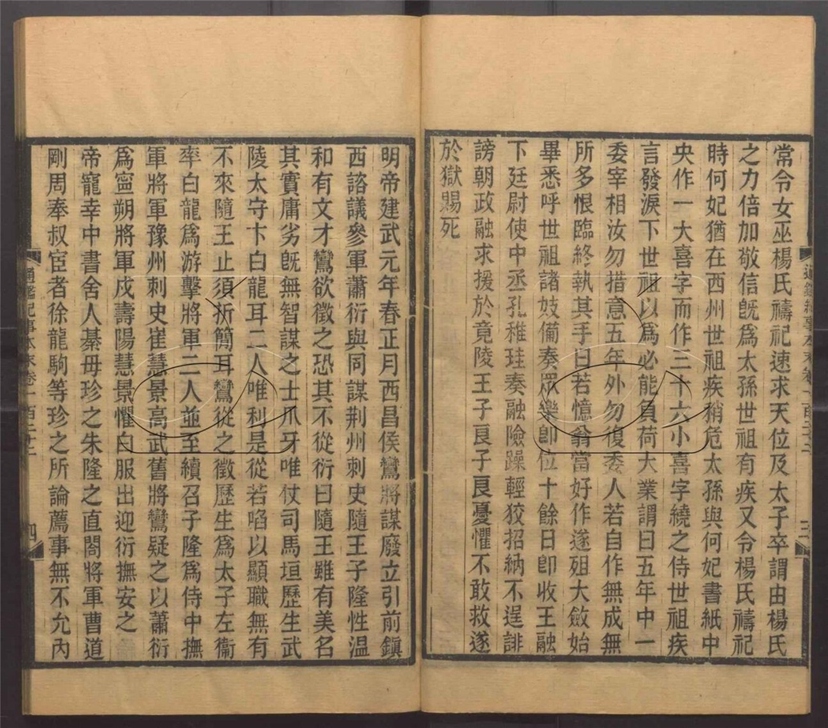 常令女巫楊氏禱祀速求天位及太子卒謂由楊氏
之力倍加敬信旣爲太孫世祖有疾又令楊氏禱祀
時何妃猶在西州世祖疾稍危太孫與何妃書紙中
央作一大喜字而作三十六小喜字繞之侍世祖疾
言發淚下世祖以爲必能負荷大業謂曰五年中一
委宰相汝勿措意五年外勿復委人若自作無成無
所多恨臨終執其手曰若憶翁當好作遂殂大斂始
畢悉呼世祖諸妓備奏眾樂卽位十餘日卽收王融
下廷尉使中丞孔稚珪奏融險躁輕狡招納不逞誹
謗朝政融求援於竟陵王子良子良憂懼不敢救遂
於獄賜死
通鑑紀事本末卷一百二十二
三
明帝建武元年春正月西昌侯鸞將謀廢立引前鎭
西諮議參軍蕭衍與同謀荆州刺史隨王子隆性溫
和有文才鸞欲徵之恐其不從衍曰隨王雖有美名
其實庸劣旣無智謀之士爪牙唯仗司馬垣歷生武
陵太守卞白龍耳二人唯利是從若啗以顯職無有
不來隨王止須折簡耳鸞從之徵歷生爲太子左衞
率白龍爲游擊將軍二人並至續召子隆爲侍中撫
軍將軍豫州刺史崔慧景高武舊將鸞疑之以蕭衍
爲寧朔將軍戍壽陽慧景懼白服出迎衍撫安之
帝寵幸中書舍人綦毋珍之朱隆之直閤將軍曹道
剛周奉叔宦者徐龍駒等珍之所論薦事無不允內
通鑑紀事本末卷一百二十二
四